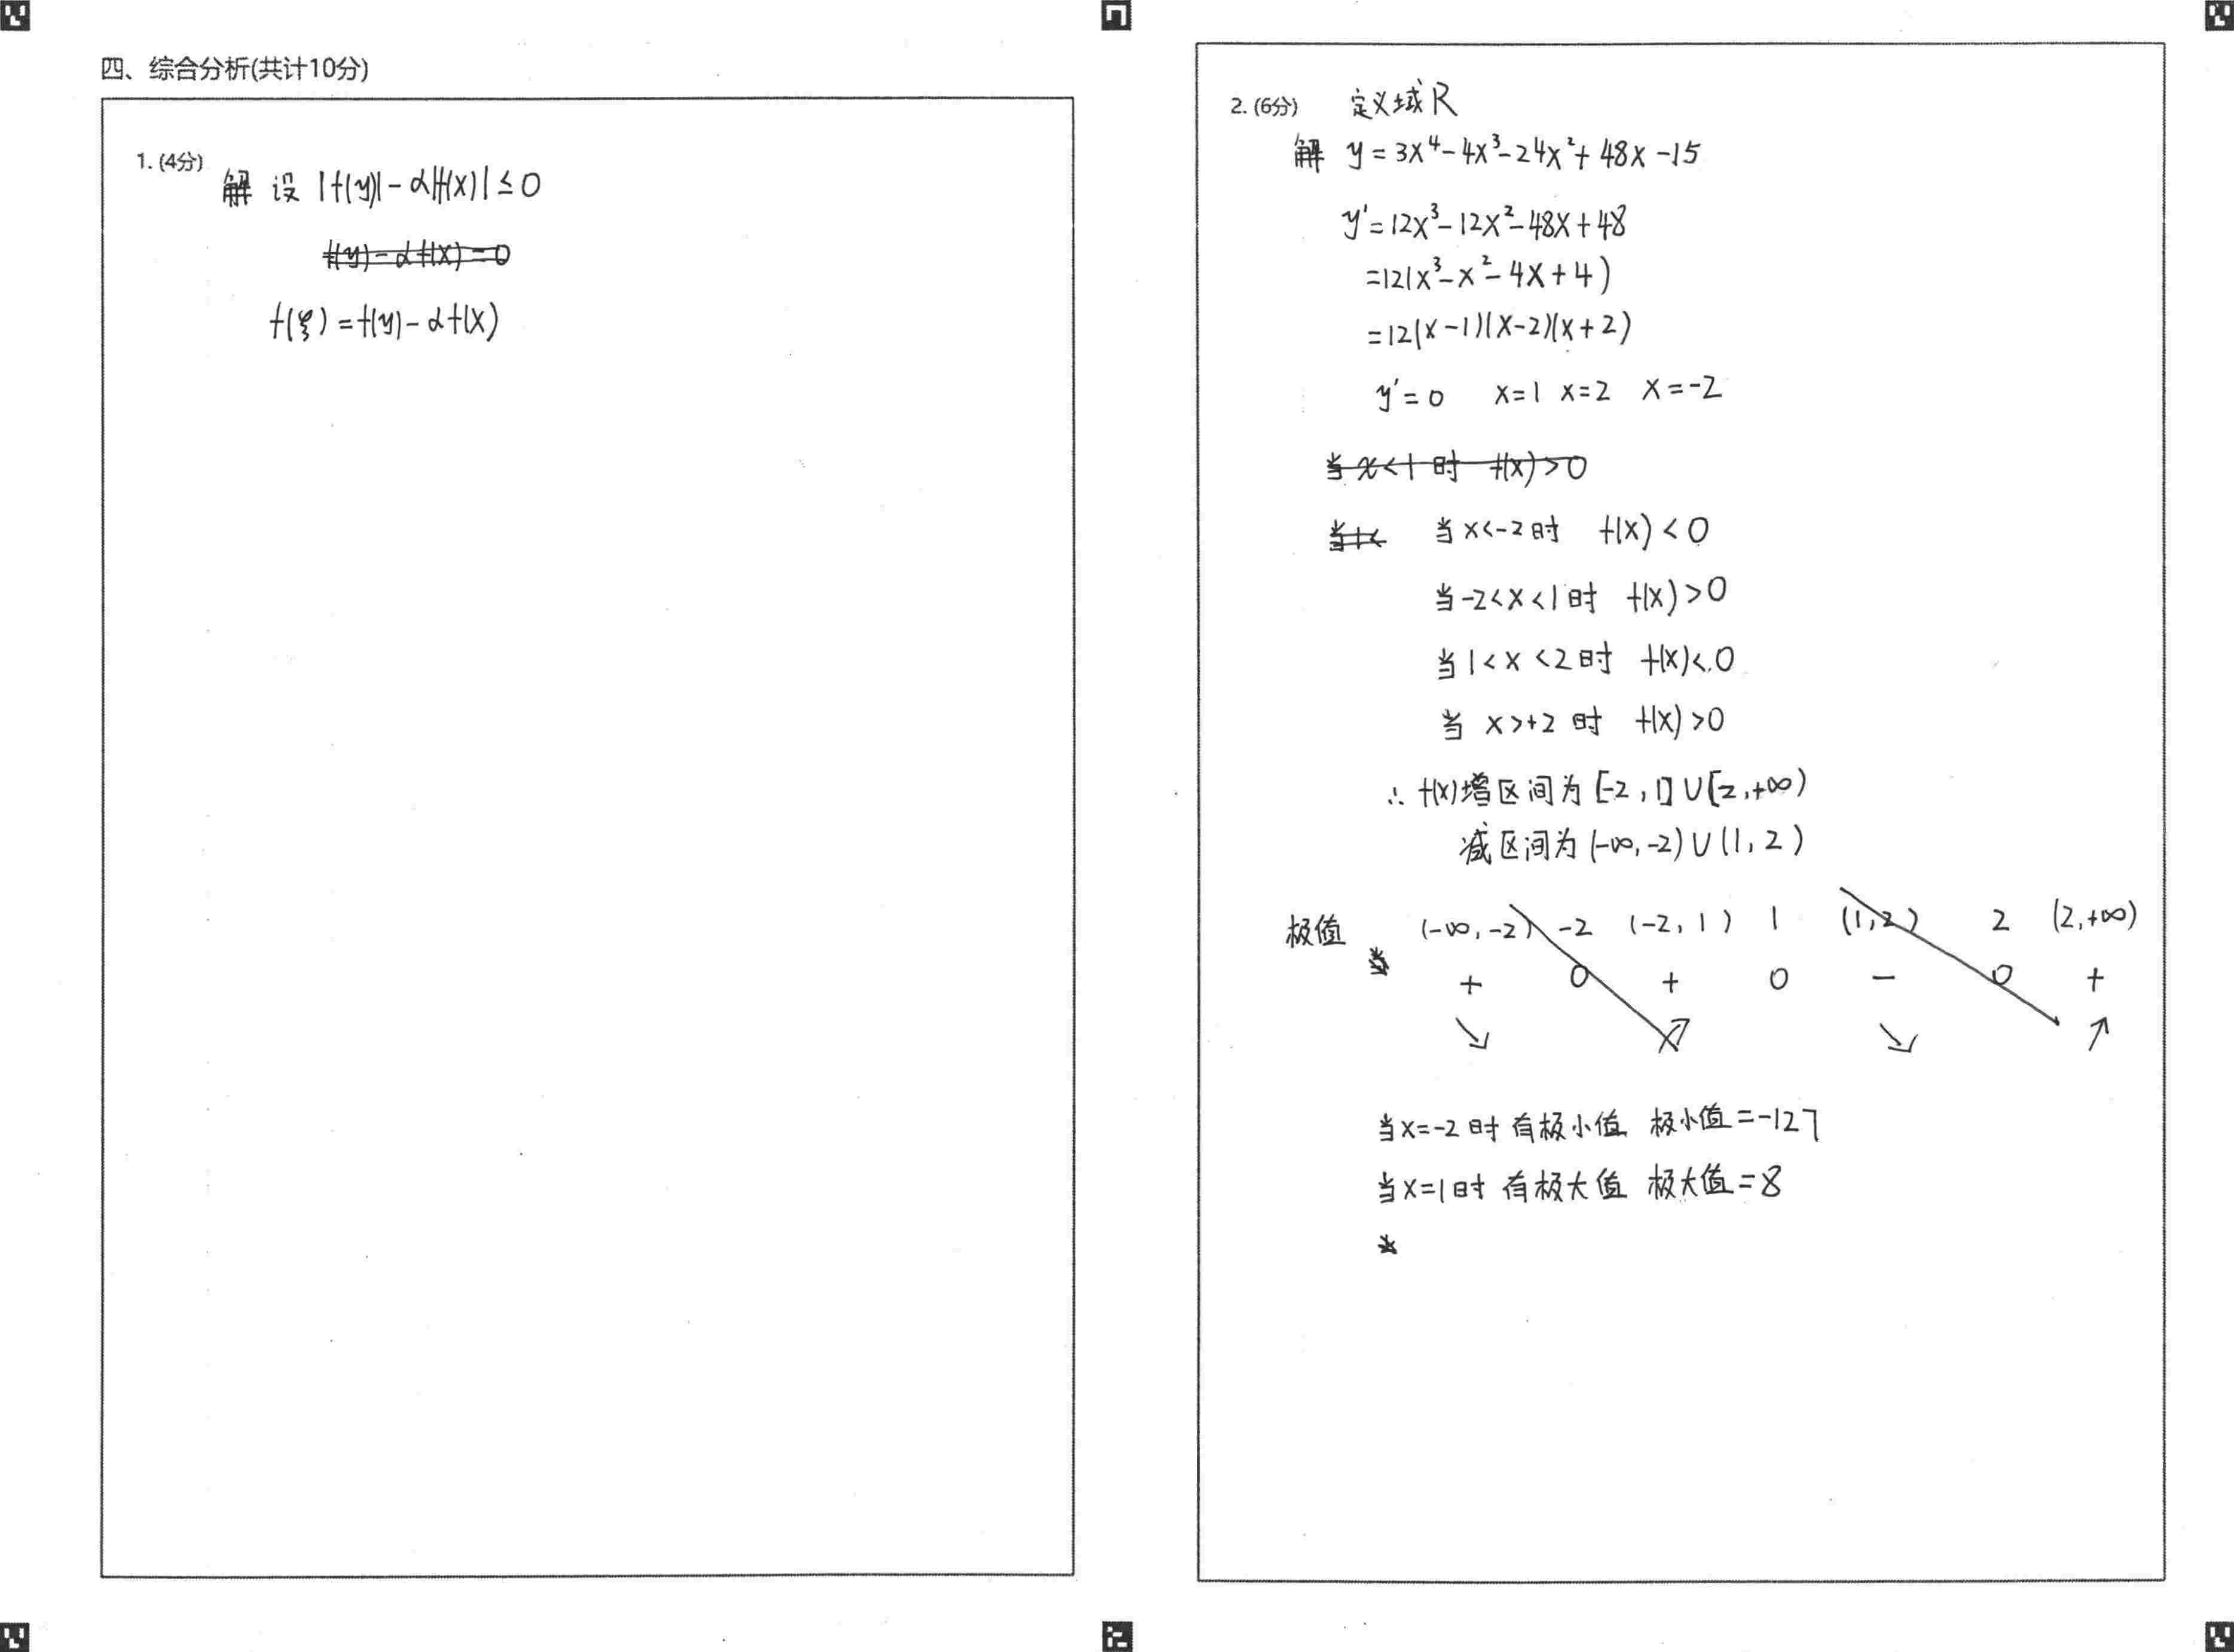 四、综合分析(共计10分)
1. (4分)
解 设 |f(y)| - α|f(x)| ≤ 0
f(y) - αf(x) = 0
f(ξ) = f(y) - αf(x)
2. (6分) 定义域R
解 y = 3x⁴ - 4x³ - 24x² + 48x - 15
y' = 12x³ - 12x² - 48x + 48
= 12(x³ - x² - 4x + 4)
= 12(x-1)(x-2)(x+2)
y' = 0 x=1 x=2 x=-2
当 x<1 时 f(x)>0
当1< 当 x<-2 时 f(x)<0
当 -2<x<1 时 f(x)>0
当 1<x<2 时 f(x)<0
当 x>+2 时 f(x)>0
∴ f(x)增区间为 [-2, 1] ∪ [2, +∞)
减区间为 (-∞, -2) ∪ (1, 2)
极值 (-∞, -2) -2 (-2, 1) 1 (1, 2) 2 (2, +∞)
+ 0 + 0 - 0 +
↘ ↗ ↘ ↗
当x=-2时 有极小值 极小值=-127
当x=1时 有极大值 极大值=8